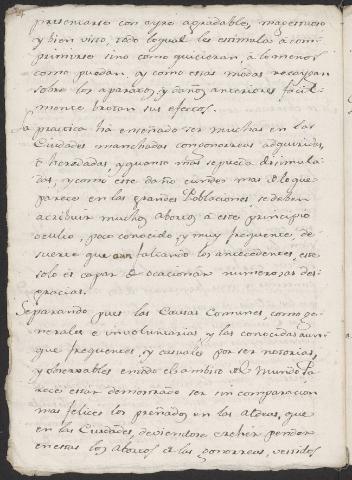 presentarse con ayre agradable, magestuoso
y bien visto, todo lo qual les estimula à com-
primirse sino como quisieran, à lo menos
como puedan, y como estas modas recaygan
sobre los aparatos, y daños anteriores facil-
mente brotan sus efectos.
La practica ha enseñado ser muchas en las
Ciudades manchadas con gonorreas adquiridas,
ò heredadas, y quanto mas se pueda disimula-
das, y como este daño cunde mas de lo que
parece en las grandes Poblaciones se deben
atribuir muchos abortos à este principio
oculto, poco conocido, y muy frequente, de
suerte que aun faltando los antecedentes, este
solo es capaz de ocasionar numerosas des-
gracias.
Separando pues las Causas Comunes, como ge-
nerales è involuntarias, y las conocidas aun-
que frequentes, y casuales por ser notorias,
y observables en todo el ambito del Mundo Pa-
rece estar demostrado ser sin comparacion
mas felices los preñados en las Aldeas, que
en las Ciudades, deviendose creher penden
en estas los Abortos de las gonorreas, vestidos